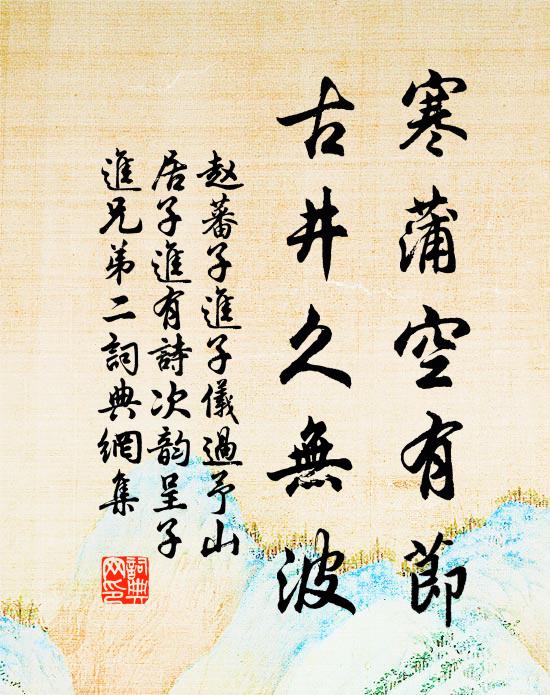 寒蒲空有節
古井久無波
赵蕃子進子儀過予山
居子進有詩次韵呈子
進兄弟二詞典網集
詞典
网印